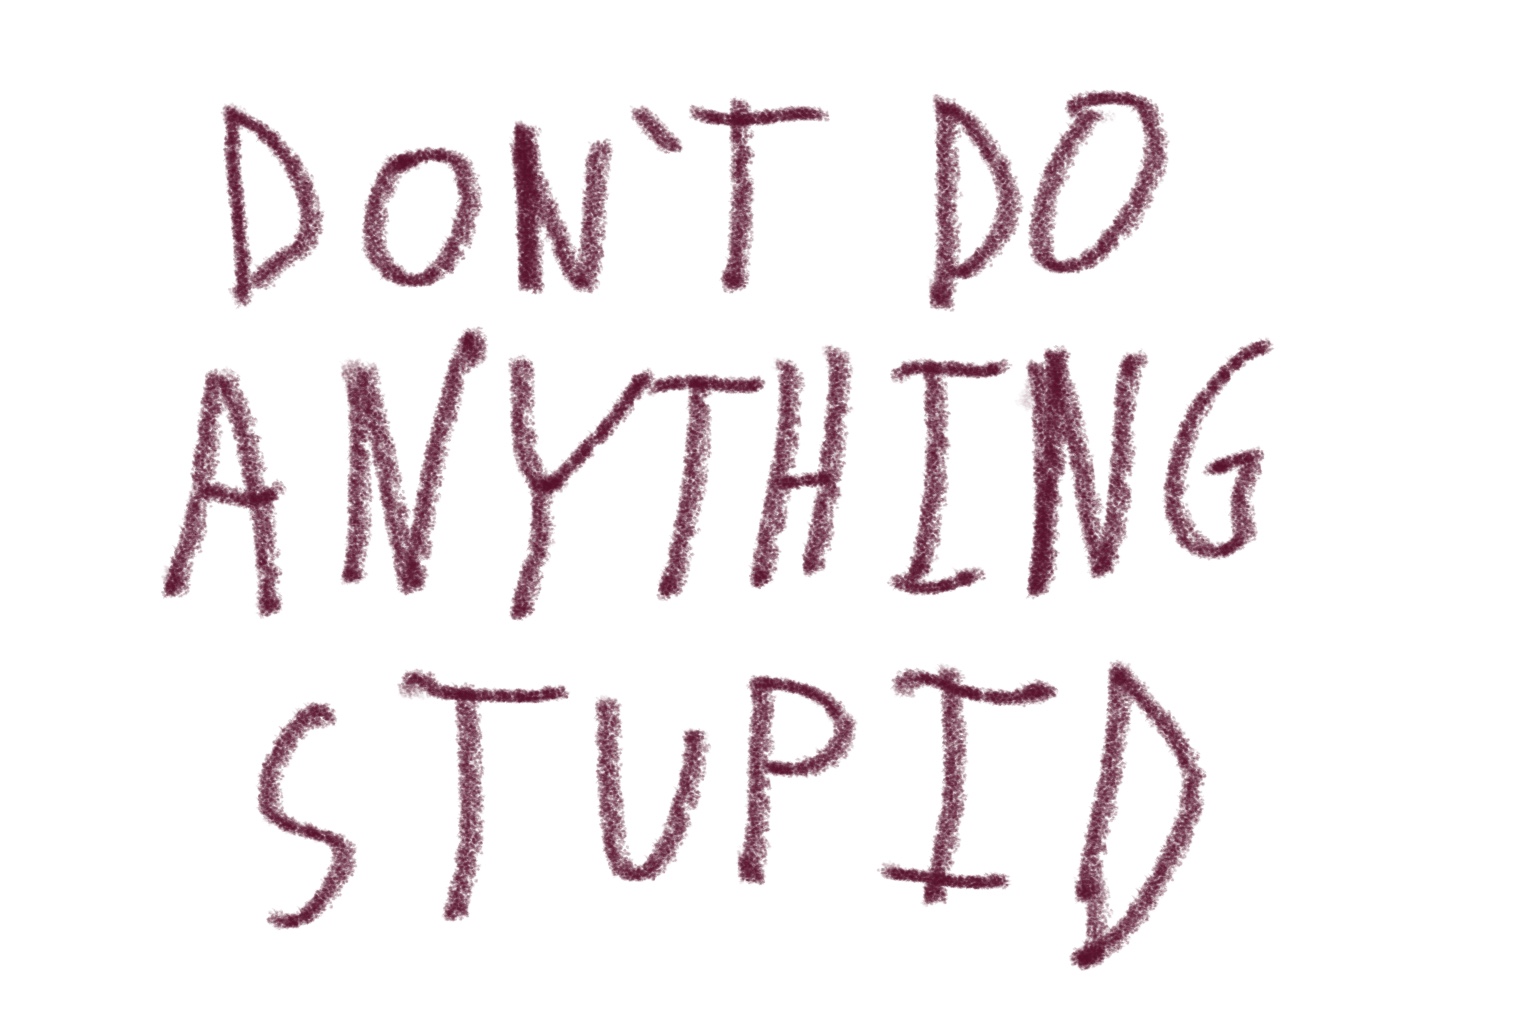 DON`T DO
ANYTHING
STUPID